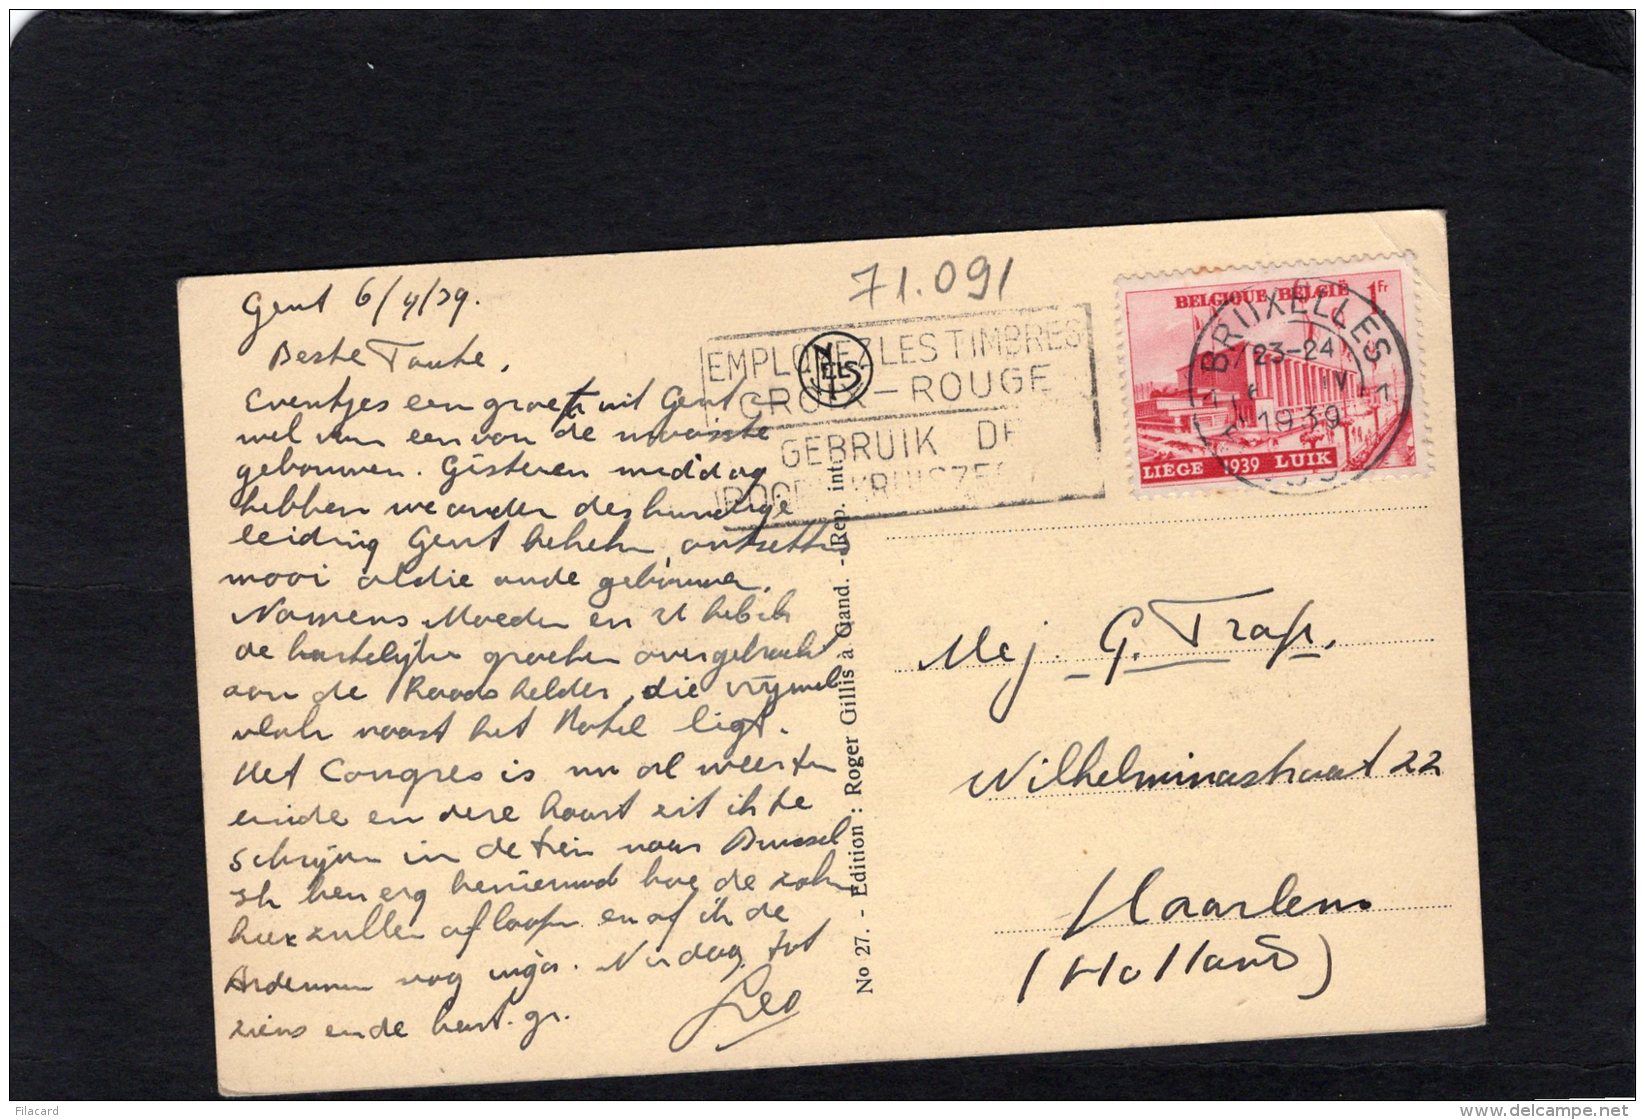 71.091
Gent 6/4/39.
Beste Tante,
Eventjes een groet uit Gent
wel van een van de mooiste
gebouwen. Gisteren middag
hebben we onder deskundige
leiding Gent bekeken, ontzettend
mooi al die oude gebouwen.
Namens Moeder en U heb ik
de hartelijke groeten overgebracht
aan de die vrijwel
vlak naast het Hotel ligt.
Het Congres is nu al weer ten
einde en deze kaart zit ik te
schrijven in de trein naar Brussel
Ik ben erg benieuwd hoe de zaken
hier zullen aflopen en of ik de
Ardennen nog inga. Nu dag, tot
ziens en de hart. gr.
Leo
EMPLOYEZ LES TIMBRES
CROIX-ROUGE
GEBRUIK DE
NELS
BELGIQUE BELGIË 1Fr
LIÈGE 1939 LUIK
BRUXELLES
23-24
6 IV
1939
No 27. - Edition : Roger Gillis à Gand. - Rep. int.
Mej. G. Trap.
Wilhelminastraat 22
Haarlem
(Holland)
Filacard
www.delcampe.net